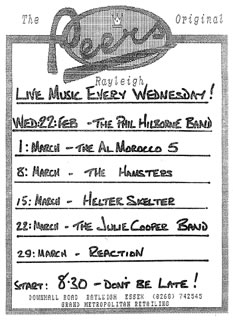 The Original
Peers
Rayleigh
LIVE MUSIC EVERY WEDNESDAY!
WED: 22: FEB - THE PHIL HILBORNE BAND
1: MARCH - THE AL MOROCCO 5
8: MARCH - THE HAMSTERS
15: MARCH - HELTER SKELTER
22: MARCH - THE JULIE COOPER BAND
29: MARCH - REACTION
START: 8:30 - DON'T BE LATE!
DOWNHALL ROAD RAYLEIGH ESSEX (0268) 742545
GRAND METROPOLITAN RETAILING